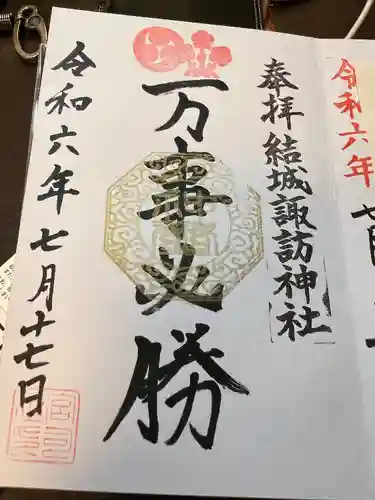 奉拝 結城諏訪神社
一万事必勝
令和六年七月十七日
令和六年